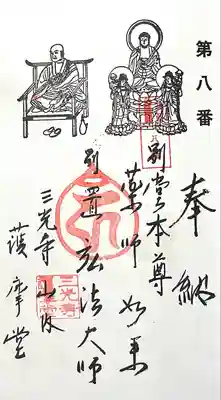 第八番
奉納
別堂本尊
薬師如来
別置弘法大師
三光寺山改
護摩堂